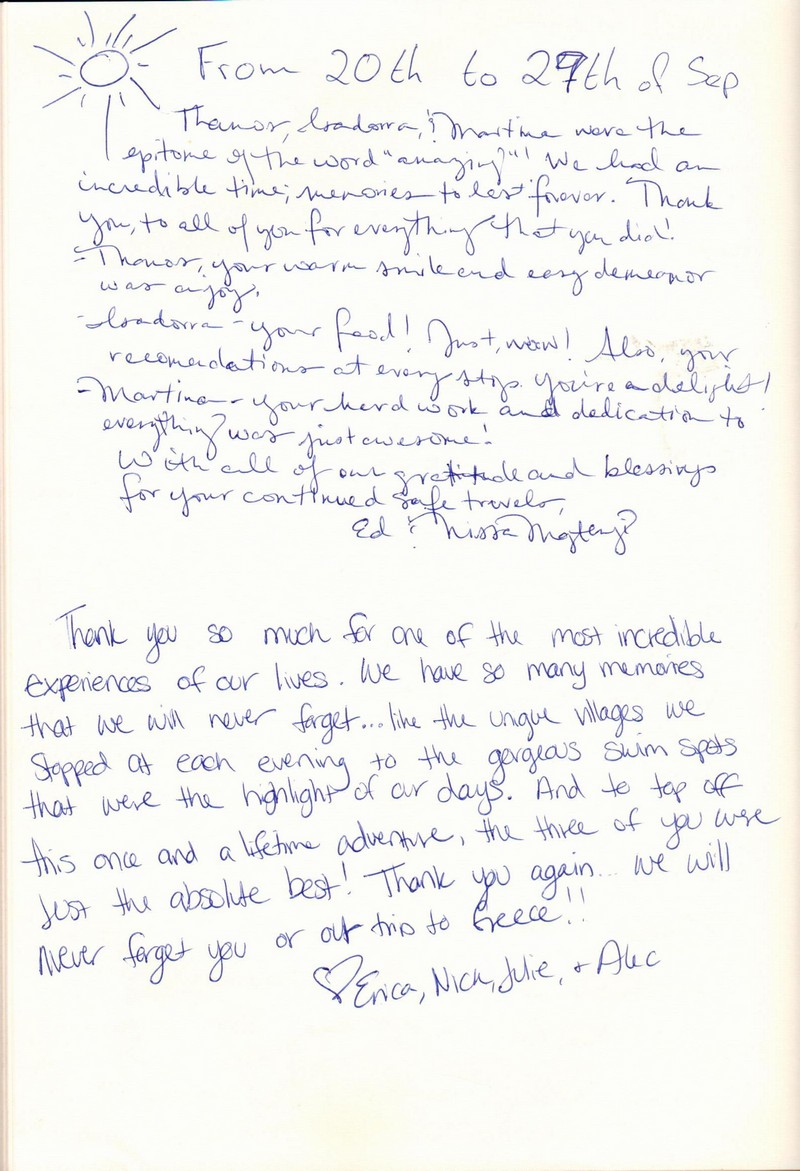 From 20th to 27th of Sep
Thanos, Isadorra, & Martina were the
epitome of the word "amazing"! We had an
incredible time; memories to last forever. Thank
you, to all of you for everything that you did!
- Thanos, your warm smile and easy demeanor
was a joy.
- Isadorra - your food! Just, wow! Also, your
recomendations at every stop. You're a delight!
- Martina - your hard work and dedication to
everything was just awesome!
With all of our gratitude and blessings
for your continued safe travels,
Ed & Missa
Thank you so much for one of the most incredible
experiences of our lives. We have so many memories
that we will never forget... like the unique villages we
stopped at each evening to the gorgeous swim spots
that were the highlight of our days. And to top off
this once and a lifetime adventure, the three of you were
just the absolute best! Thank you again... we will
never forget you or our trip to Greece!!
♡ Erica, Nick, Julie, + Alec